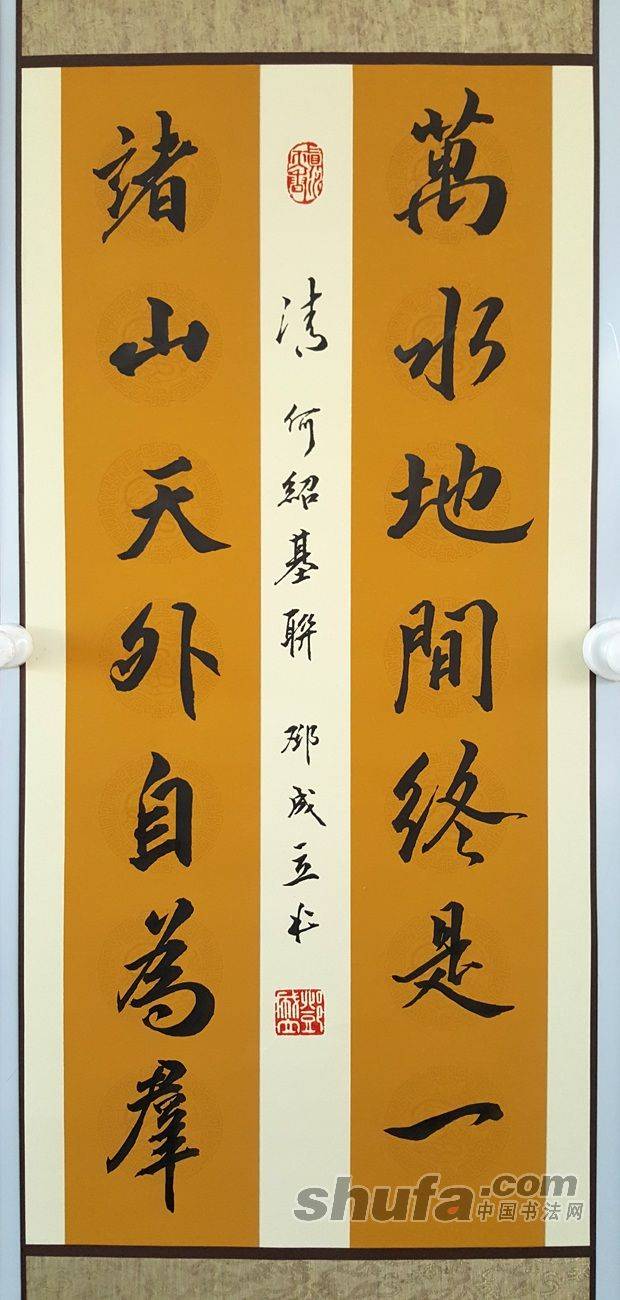 萬水地間終是一
清 何紹基聯 鄧成立
諸山天外自為羣
shufa.com
中国书法网